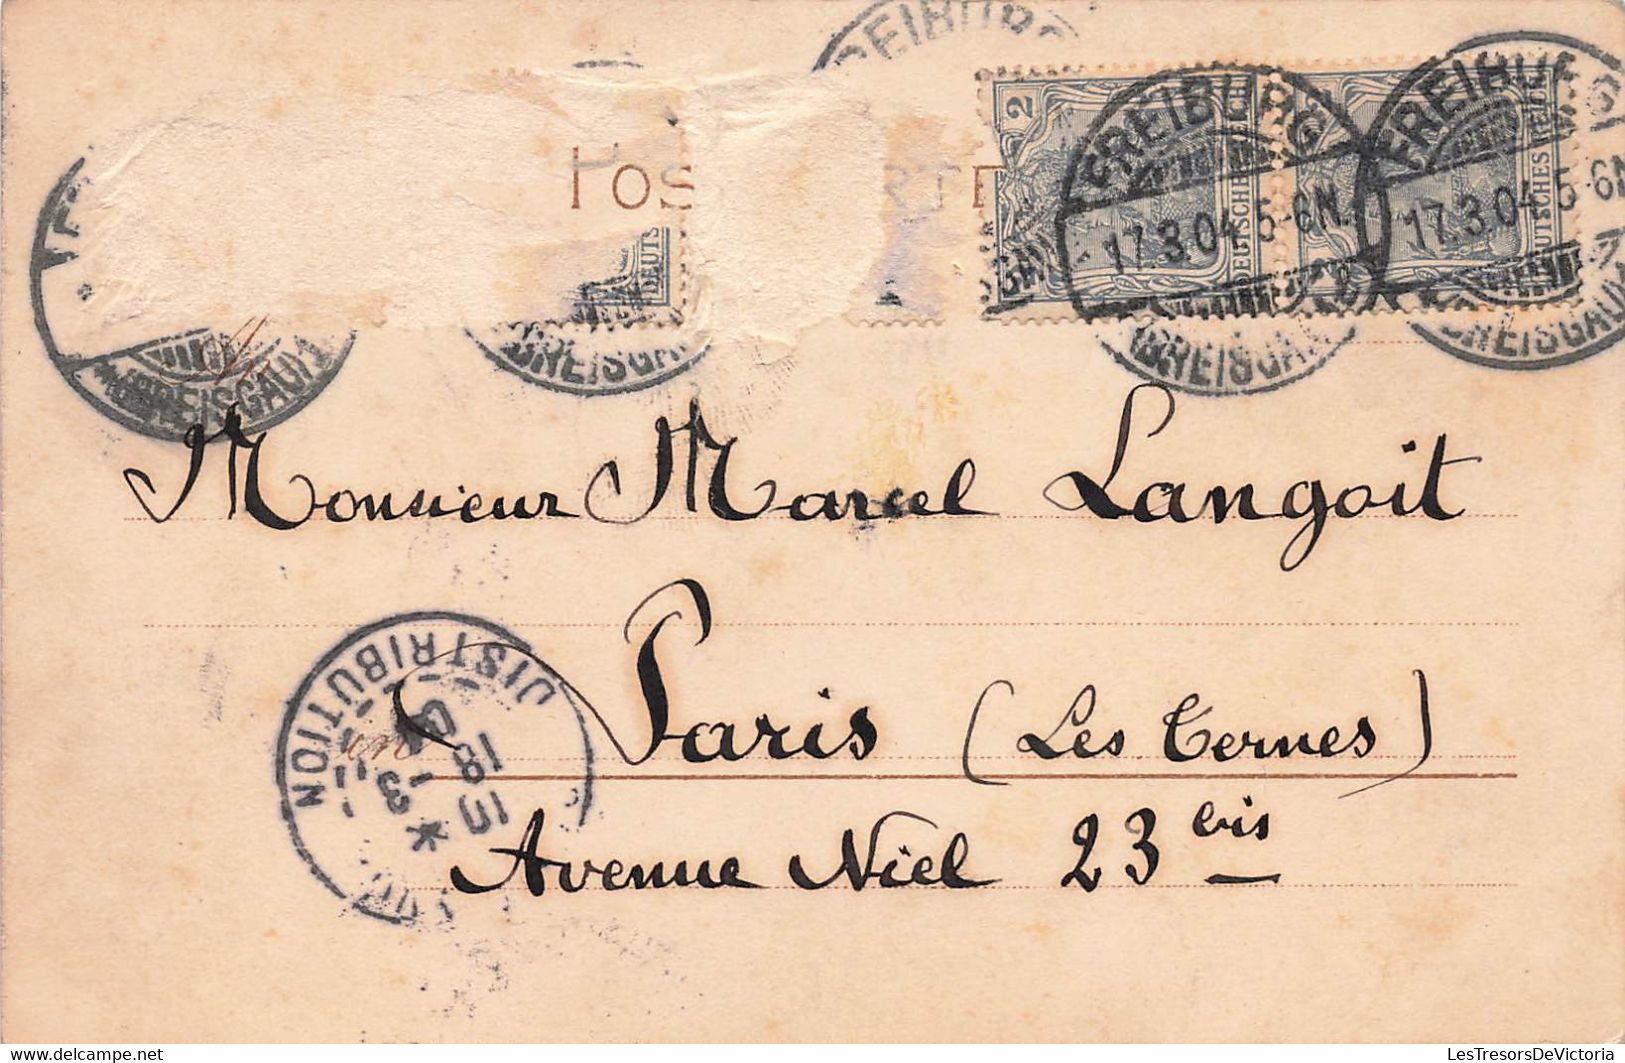 FREIBURG
POS RTE
2
DEUTSCHES REICH
DEUTSCHES REICH
DEUTS
FREIBURG
17.3.04. 5-6N.
(BREISGAU)
FREIBURG
17.3.04. 5-6N
(BREISGAU)
(BREISGAU)
BREISGAU
Monsieur Marcel Langoit
DISTRIBUTION
15
18
3
04
in
Paris (Les Ternes)
Avenue Niel 23 bis
LesTresorsDeVictoria